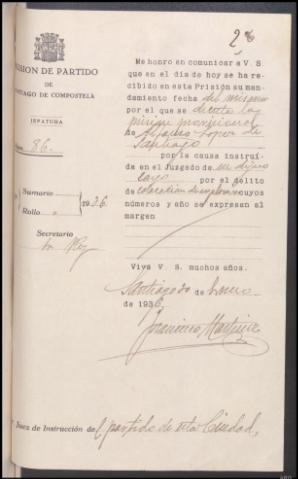 2
PRISION DE PARTIDO
DE
SANTIAGO DE COMPOSTELA
JEFATURA
86.
Sumario
Rollo
1936.
Secretario
Sr. Rey
Me honro en comunicar a V. S.
que en el día de hoy se ha re-
cibido en esta Prisión su man-
damiento fecha del mismo
por el que se
Santiago
por la causa instruí-
da en el Juzgado de su digno
cargo por el delito
de colocación de explosivos cuyos
números y año se expresan al
margen
Viva V. S. muchos años.
Santiago de Enero
de 1936
Francisco Martínez
Juez de Instrucción del partido de esta Ciudad,